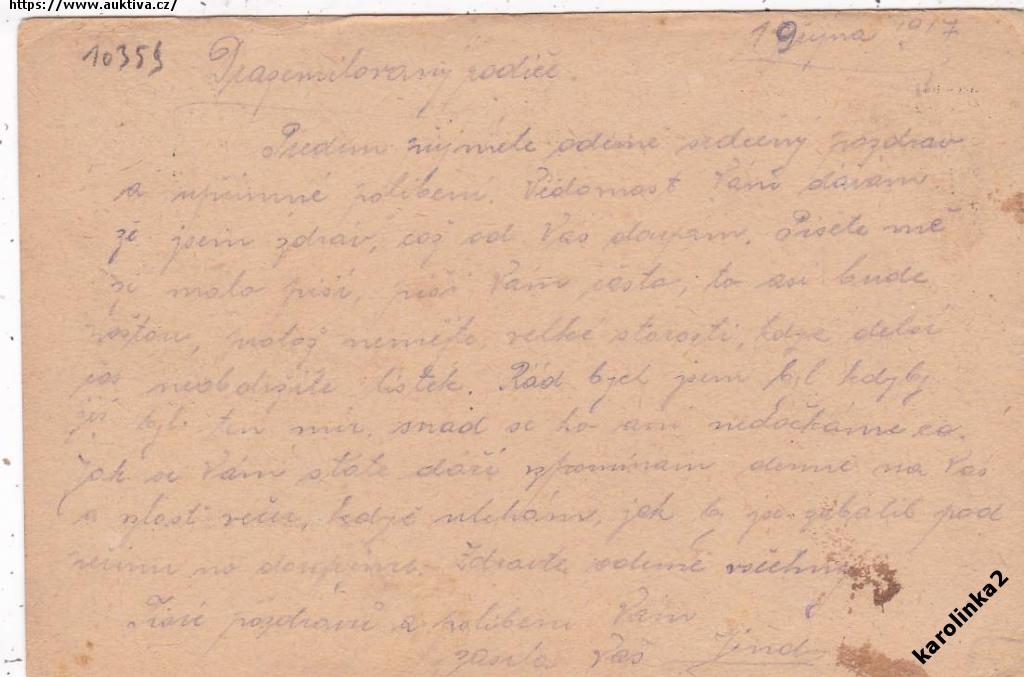 https://www.auktiva.cz/
10359 19 října 1917
Drazemilovaný rodiče.
Předem přijmete odemě srdečný pozdrav
a upřimné polibení. Vědomost Vám dávám
že jsem zdráv, což od Vás doufám. Pisete mě
že malo piši, piši Vám často, to asi bude
poštou, protož nemějte velké starosti, když delší
čas neobdržite listek. Rád bych jsem byl kdyby
již byl ten mir, snad se ho ani nedočkáme co.
Jak se Vám stále daří vzpominam denně na Vás
a vlast večer, když ulehám, jak by se pod
no doufejme. Zdravte odemě všechny
Tisíc pozdravů a polibeni Vám
zasila Váš Jind
karolinka2